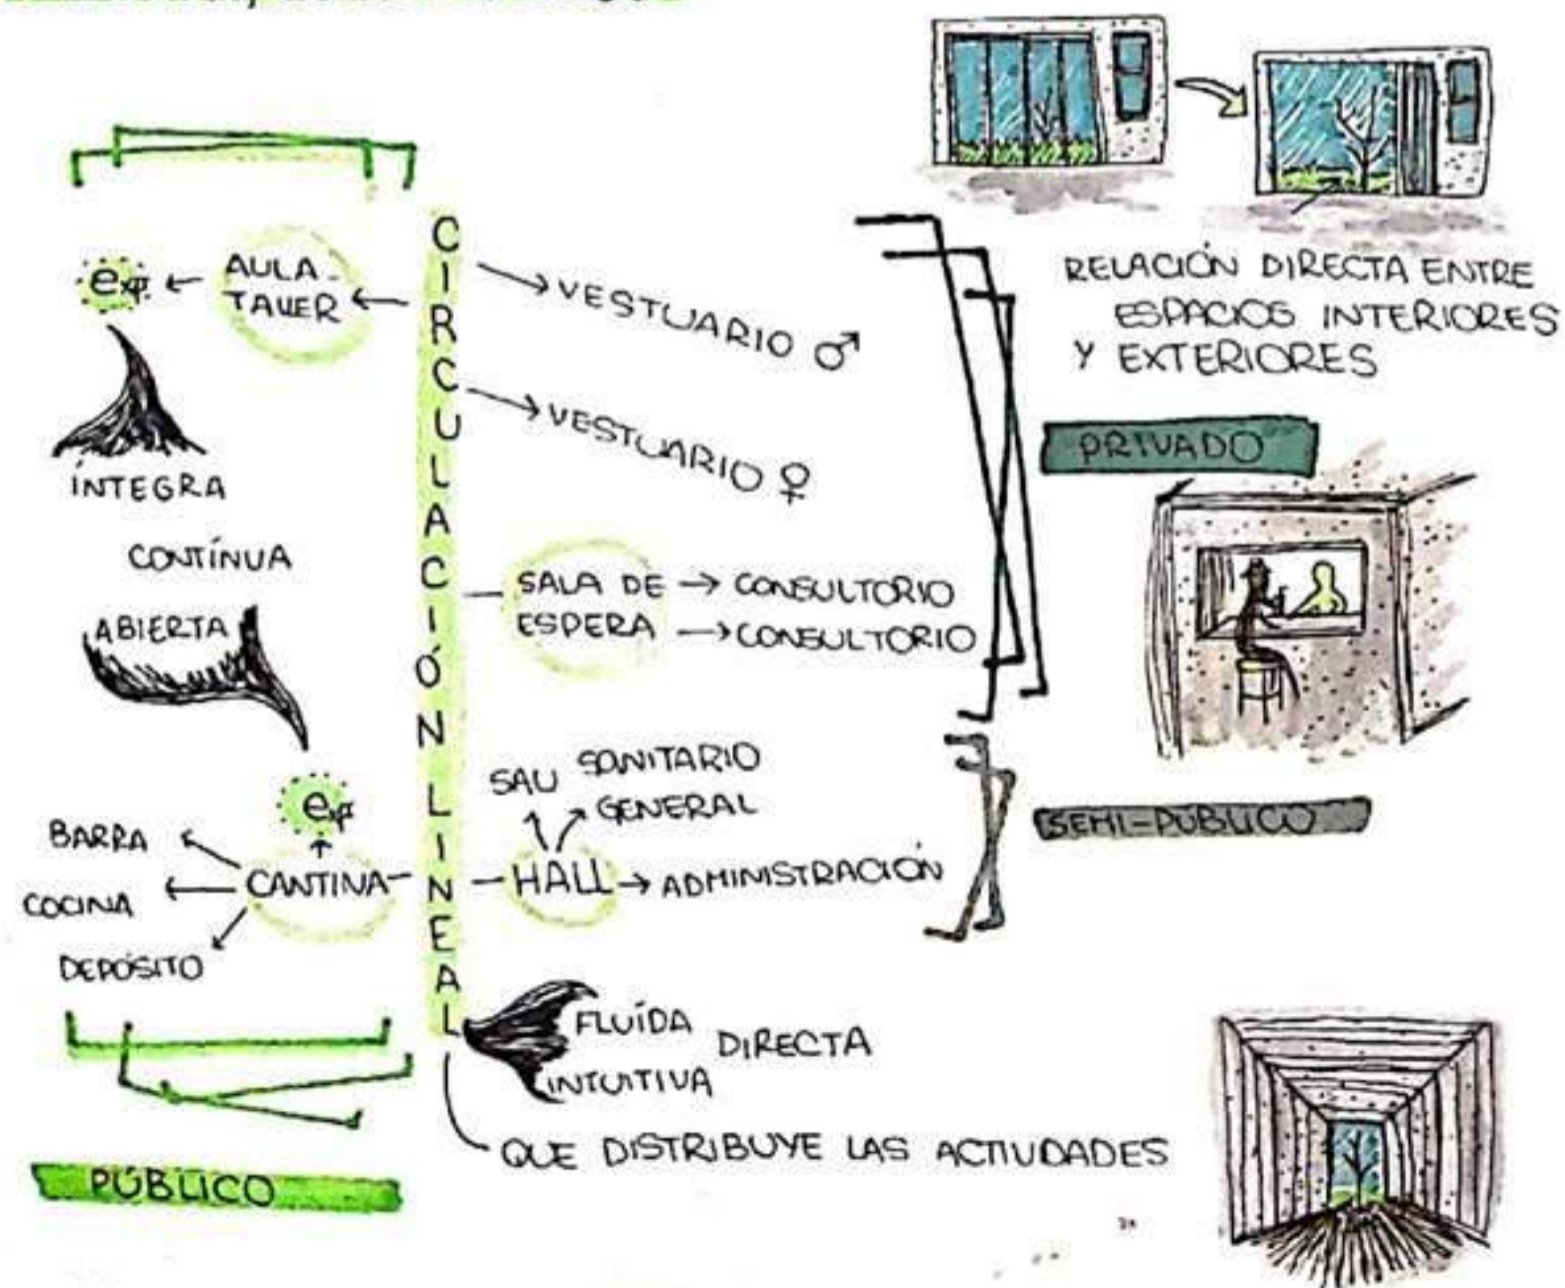 CIRCULACIÓN LINEAL
exp
AULA-
TALLER
ÍNTEGRA
CONTÍNUA
ABIERTA
exp
BARRA
COCINA
DEPÓSITO
CANTINA
PÚBLICO
VESTUARIO ♂
VESTUARIO ♀
SALA DE
ESPERA
CONSULTORIO
CONSULTORIO
SAU
SANITARIO
GENERAL
HALL
ADMINISTRACIÓN
FLUÍDA
DIRECTA
INTUITIVA
QUE DISTRIBUYE LAS ACTIVIDADES
RELACIÓN DIRECTA ENTRE
ESPACIOS INTERIORES
Y EXTERIORES
PRIVADO
SEMI-PÚBLICO